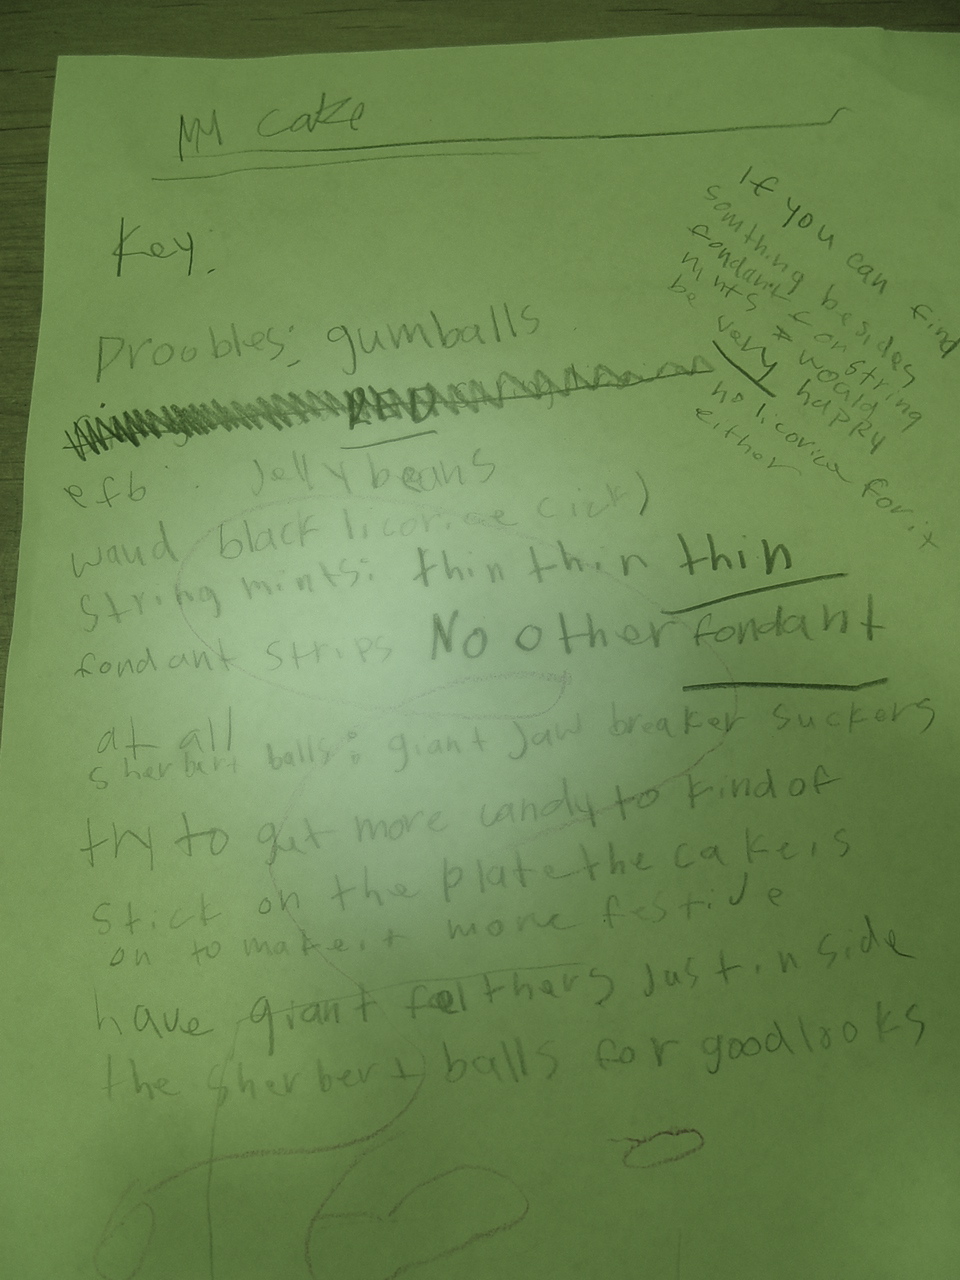 My cake
Key:
Droobles: gumballs
RED
efb: Jelly beans
waud black licorice (ick)
string mints: thin thin thin
fondant strips No other fondant
at all
sherbert balls: giant Jaw breaker suckers
try to get more candy to kind of
stick on the plate the cake is
on to make it more festive
have giant feathers Just inside
the sherbert balls for good looks
If you can find
somthing besides
fondant for string
mints I would
be very happy
no licorice for it
either